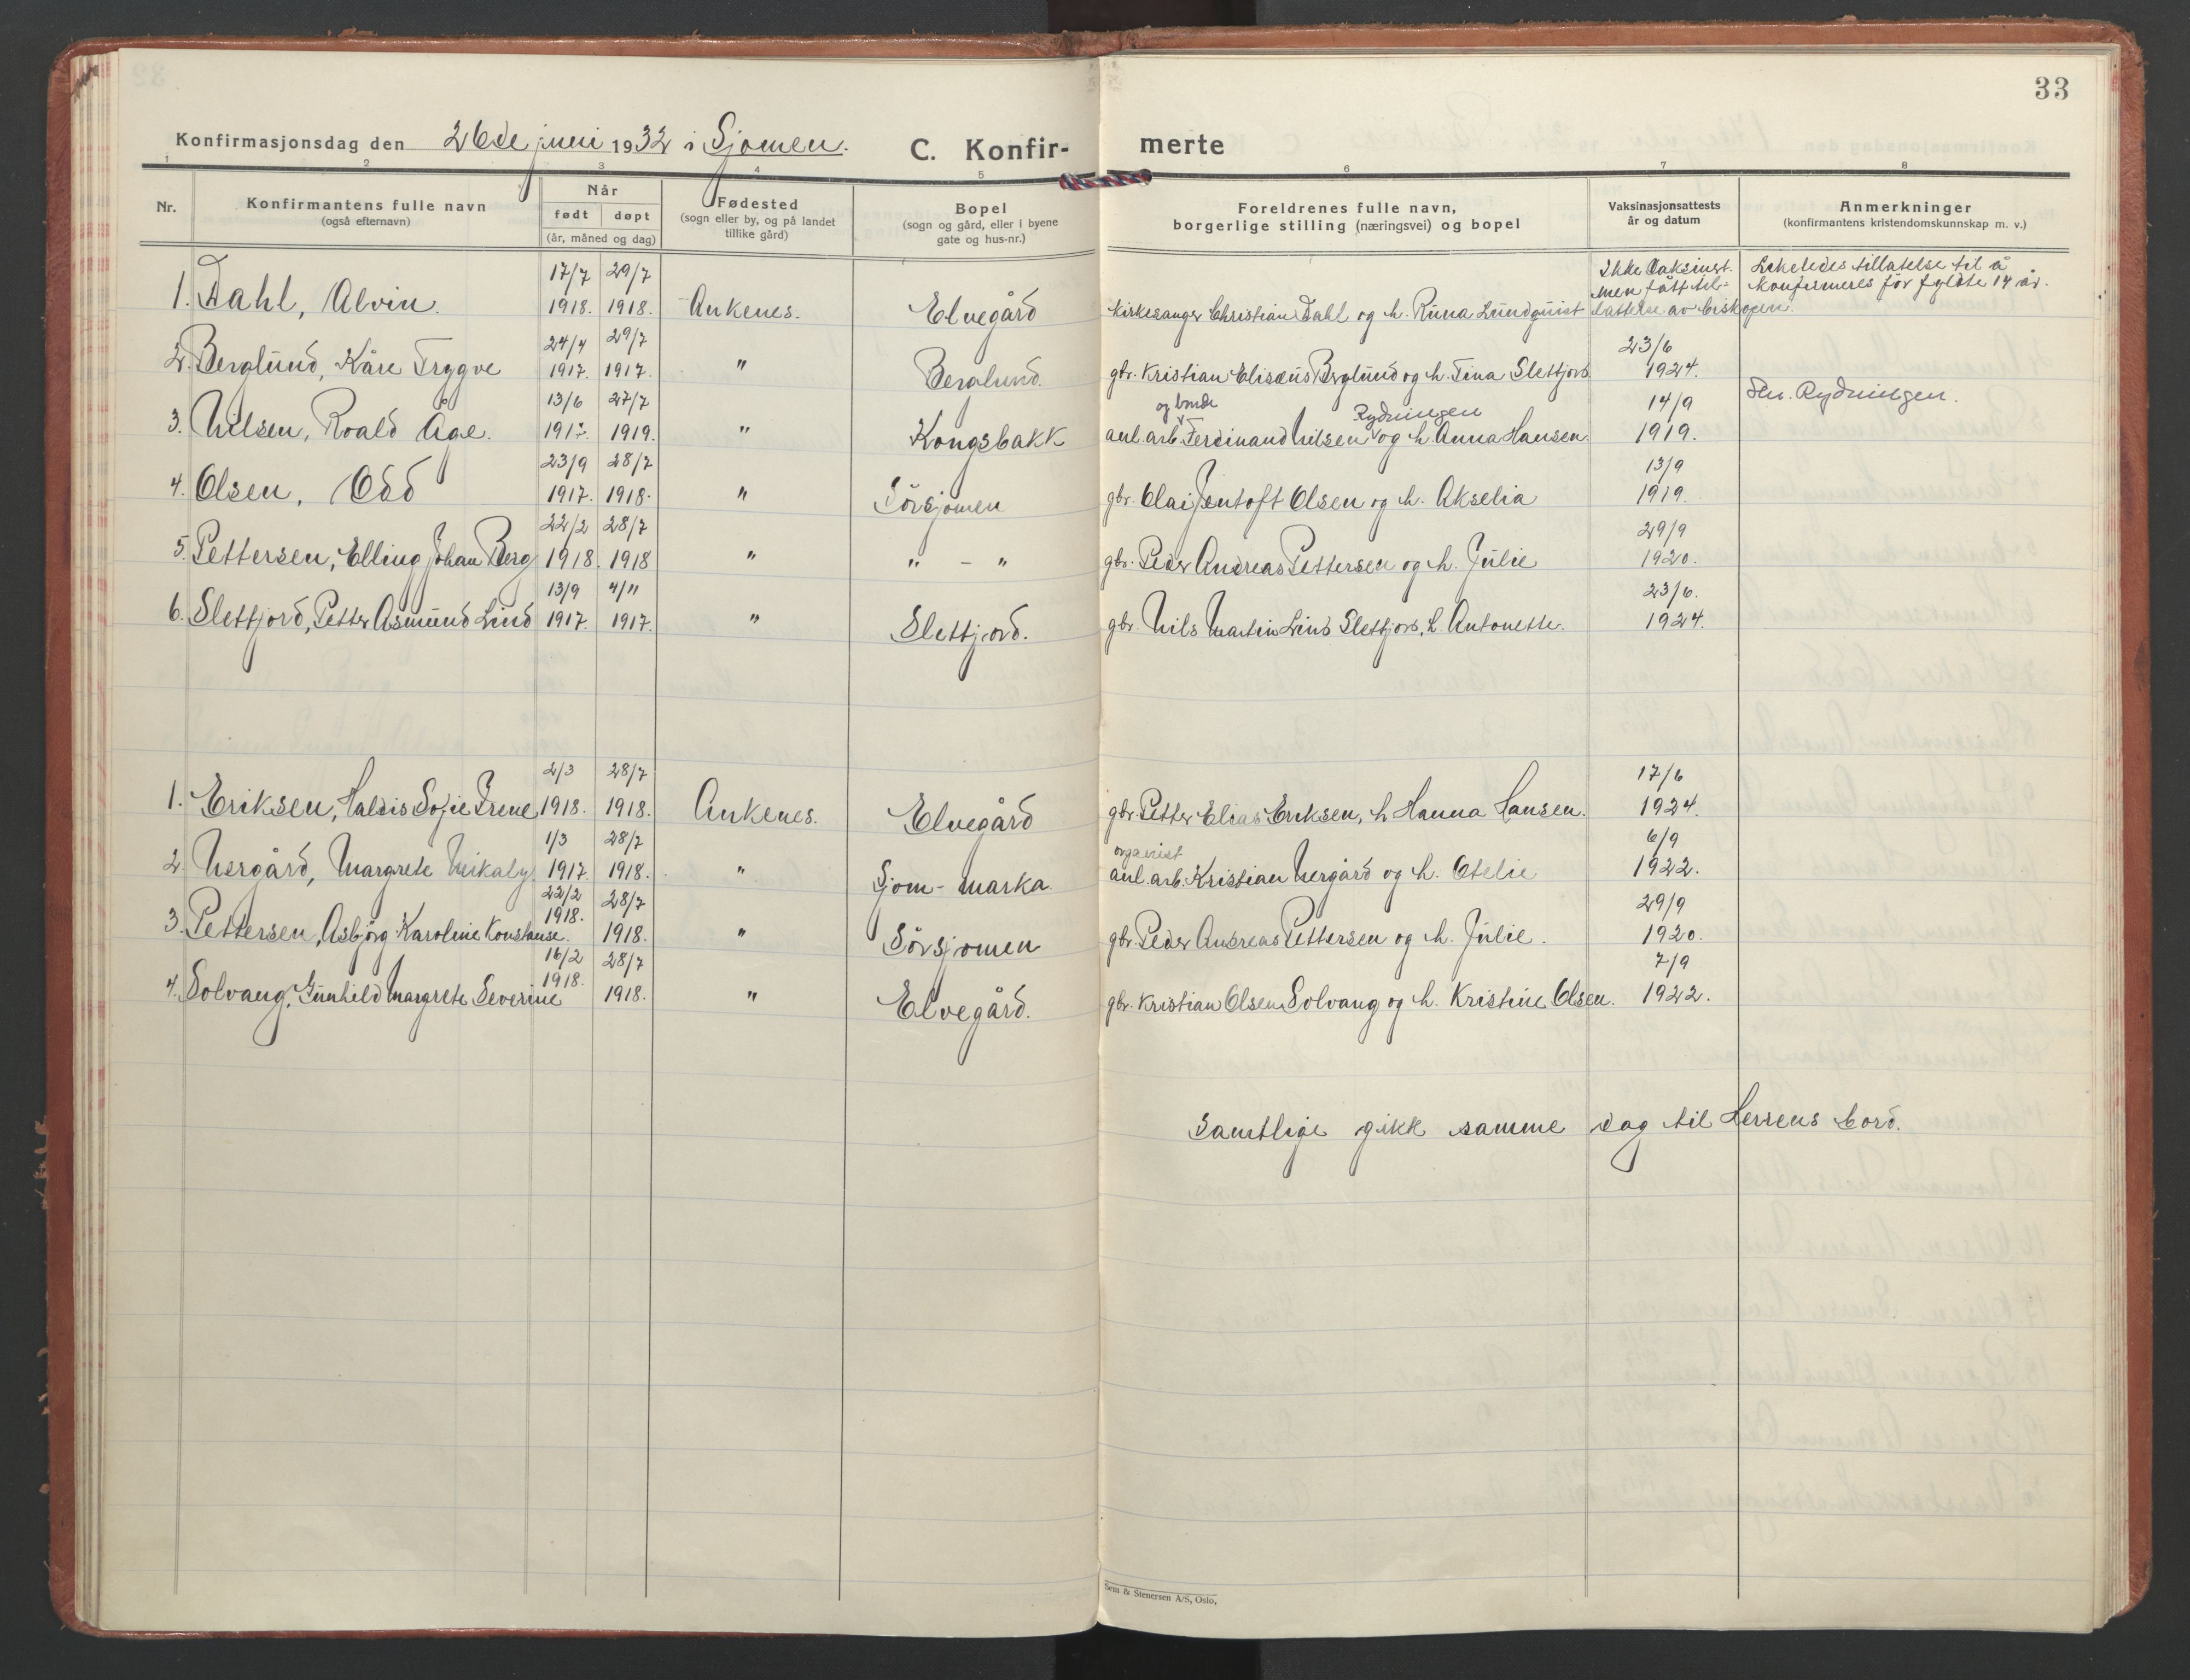 33
Konfirmasjonsdag den 26de juni 1932 i Sjomen. C. Konfir- merte
1 2 3 4 5 6 7 8
Nr. Konfirmantens fulle navn (også efternavn) Når født døpt (år, måned og dag) Fødested (sogn eller by, og på landet tillike gård) Bopel (sogn og gård, eller i byene gate og hus-nr.) Foreldrenes fulle navn, borgerlige stilling (næringsvei) og bopel Vaksinasjonsattests år og datum Anmerkninger (konfirmantens kristendomskunnskap m. v.)
17/7 29/7 Ikke vaksinert. Likeledes tillatelse til å
men fått til- konfirmeres før fylte 14 år.
1. Dahl, Alvin. 1918. 1918. Ankenes. Elvegård Kirkesanger Christian Dahl og h. Runa Lundquist latelse av biskopen.
24/4 29/7 23/6
2. Berglund, Kåre Trygve 1917. 1917. " Berglund. gbr. Kristian Elisæus Berglund og h. Tina Slettjord 1924.
13/6 27/7 og bonde Rydningen 14/9 Rydningen.
3. Nilsen, Roald Åge. 1917. 1919. " Kongsbakk anl. arb. Ferdinand Nilsen og h. Anna Hansen. 1919.
23/9 28/7 13/9
4. Olsen, Odd 1917. 1918. " Sörsjomen gbr. Olai Jentoft Olsen og h. Akselia 1919.
22/2 28/7 29/9
5. Pettersen, Elling Johan Berg 1918. 1918 " " - " gbr. Peder Andreas Pettersen og h. Julie 1920.
13/9 4/11 23/6.
6. Slettjord, Petter Asmund Lind 1917. 1917. " Slettjord. gbr. Nils Martin Lind Slettjord, h. Antonette. 1924.
2/3 28/7 17/6
1. Eriksen, Haldis Sofie Irene 1918. 1918. Ankenes. Elvegård gbr. Petter Elias Eriksen, h. Hanna Hansen. 1924.
1/3 28/7 organist 6/9
2. Nergård, Margrete Mikaly 1917. 1918. " Sjom-marka anl. arb. Kristian Nergård og h. Otelie 1922.
22/2 28/7 29/9
3. Pettersen, Asbjörg Karoline Konstanse. 1918. 1918. " Sörsjomen gbr. Peder Andreas Pettersen og h. Julie. 1920.
16/2 28/7 7/9
4. Solvang, Gunhild Margrete Severine 1918. 1918. " Elvegård. gbr. Kristian Olsen Solvang og h. Kristine Olsen. 1922.
Samtlige gikk samme dag til Herrens bord.
Sem & Stenersen A/S, Oslo.